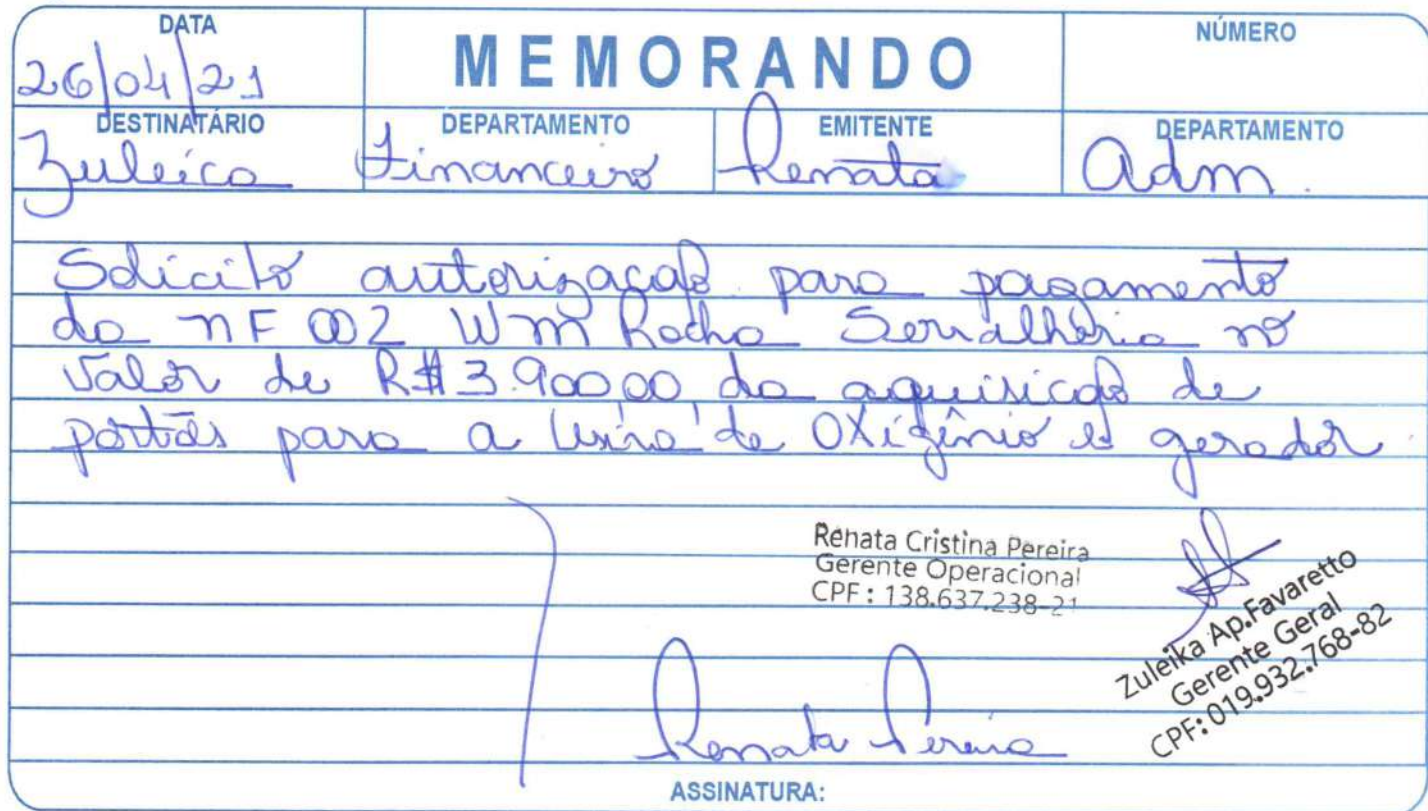 DATA
MEMORANDO
NÚMERO
26/04/21
DESTINATÁRIO DEPARTAMENTO EMITENTE DEPARTAMENTO
Zuleica Financeiro Renata Adm.
Solicito autorização para pagamento
da NF 002 WM Rocha Serralheria no
valor de R$ 3.900,00 da aquisição de
portões para a Usina de Oxigênio e gerador
Renata Cristina Pereira
Gerente Operacional
CPF: 138.637.238-21
Zuleika Ap.Favaretto
Gerente Geral
CPF: 019.932.768-82
Renata Pereira
ASSINATURA: